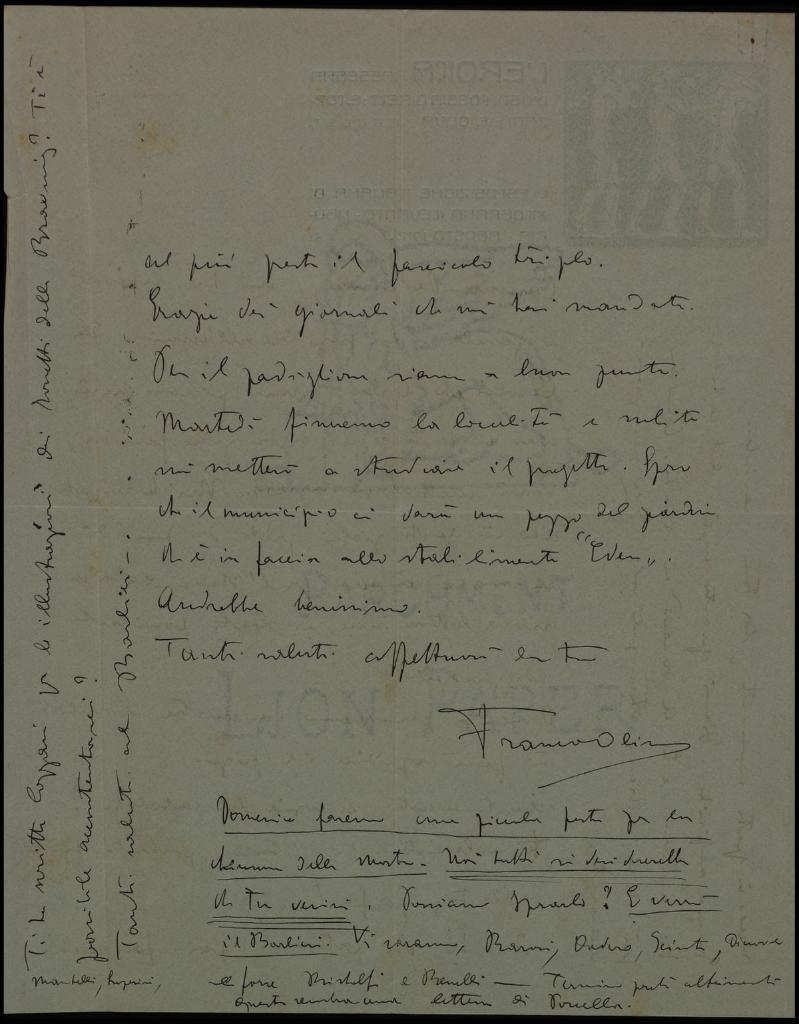 al più presto il fascicolo triplo.
Grazie dei giornali che mi hai mandati.
Per il padiglione siamo a buon punto.
Martedì firmeremo la località e subito
mi metterò a studiare il progetto. Spero
che il municipio ci darà un pezzo del giardino
che è in faccia allo stabilimento "Eden".
Andrebbe benissimo.
Tanti saluti affettuosi dal tuo
Franco Oliva
Domenica faremo una piccola festa per la
chiusura della mostra. Noi tutti si desidererebbe
che Tu venissi. Possiamo sperarlo? E verrà
il Barlini. Vi saranno, Baroni,
Mantelli,
e forse Bistolfi e Benelli — Termino perché altrimenti
questa sembra una lettera di
Ti ha scritto Cozzani per le illustrazioni dei Sonetti della Browning? Ti è
possibile accontentarci?
Tanti saluti al Barlini —
L'EROICA